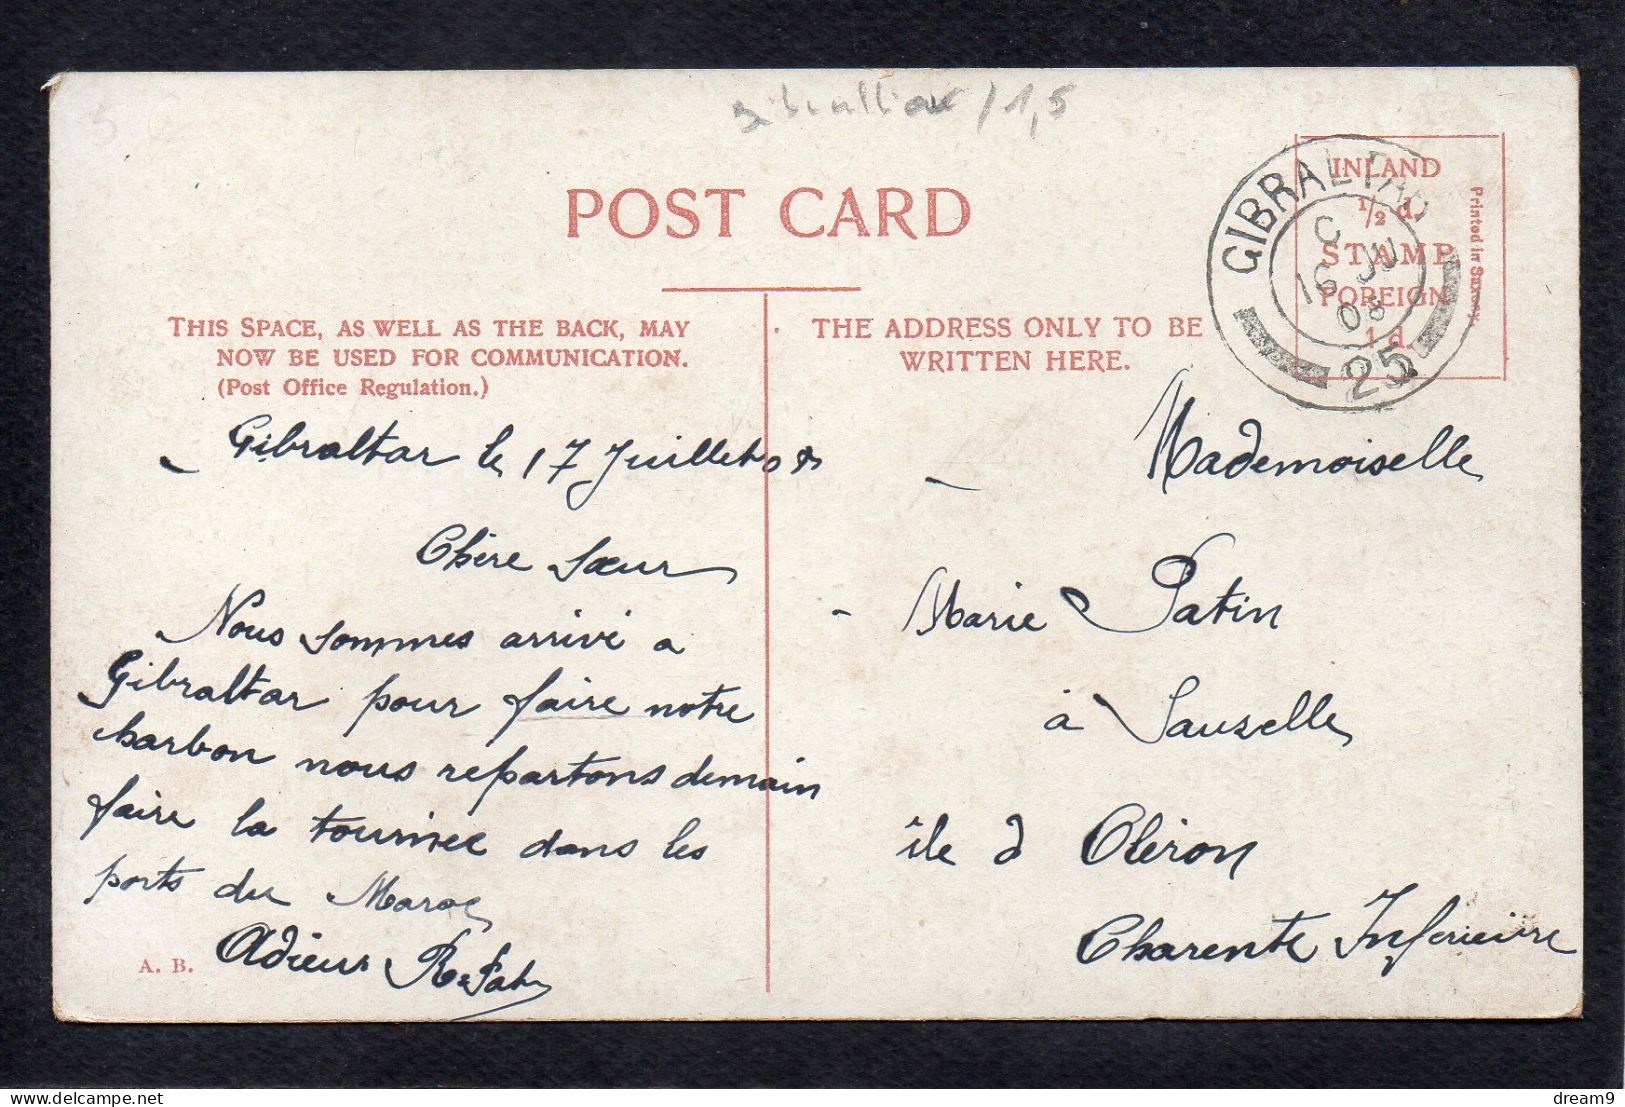 Gibraltar / 1,5
POST CARD
THIS SPACE, AS WELL AS THE BACK, MAY
NOW BE USED FOR COMMUNICATION.
(Post Office Regulation.)
THE ADDRESS ONLY TO BE
WRITTEN HERE.
INLAND
1/2 d.
STAMP
FOREIGN
1 d.
Printed in Saxony.
GIBRALTAR
C
16 JU
08
25
Gibraltar le 17 Juillet 08
Chère Sœur
Nous sommes arrivé a
Gibraltar pour faire notre
charbon nous repartons demain
faire la tournee dans les
ports du Maroc
Adieux R. Patin
A. B.
Mademoiselle
Marie Patin
à Sauzelle
île d Oléron
Charente Inferieure
delcampe.net
dream9